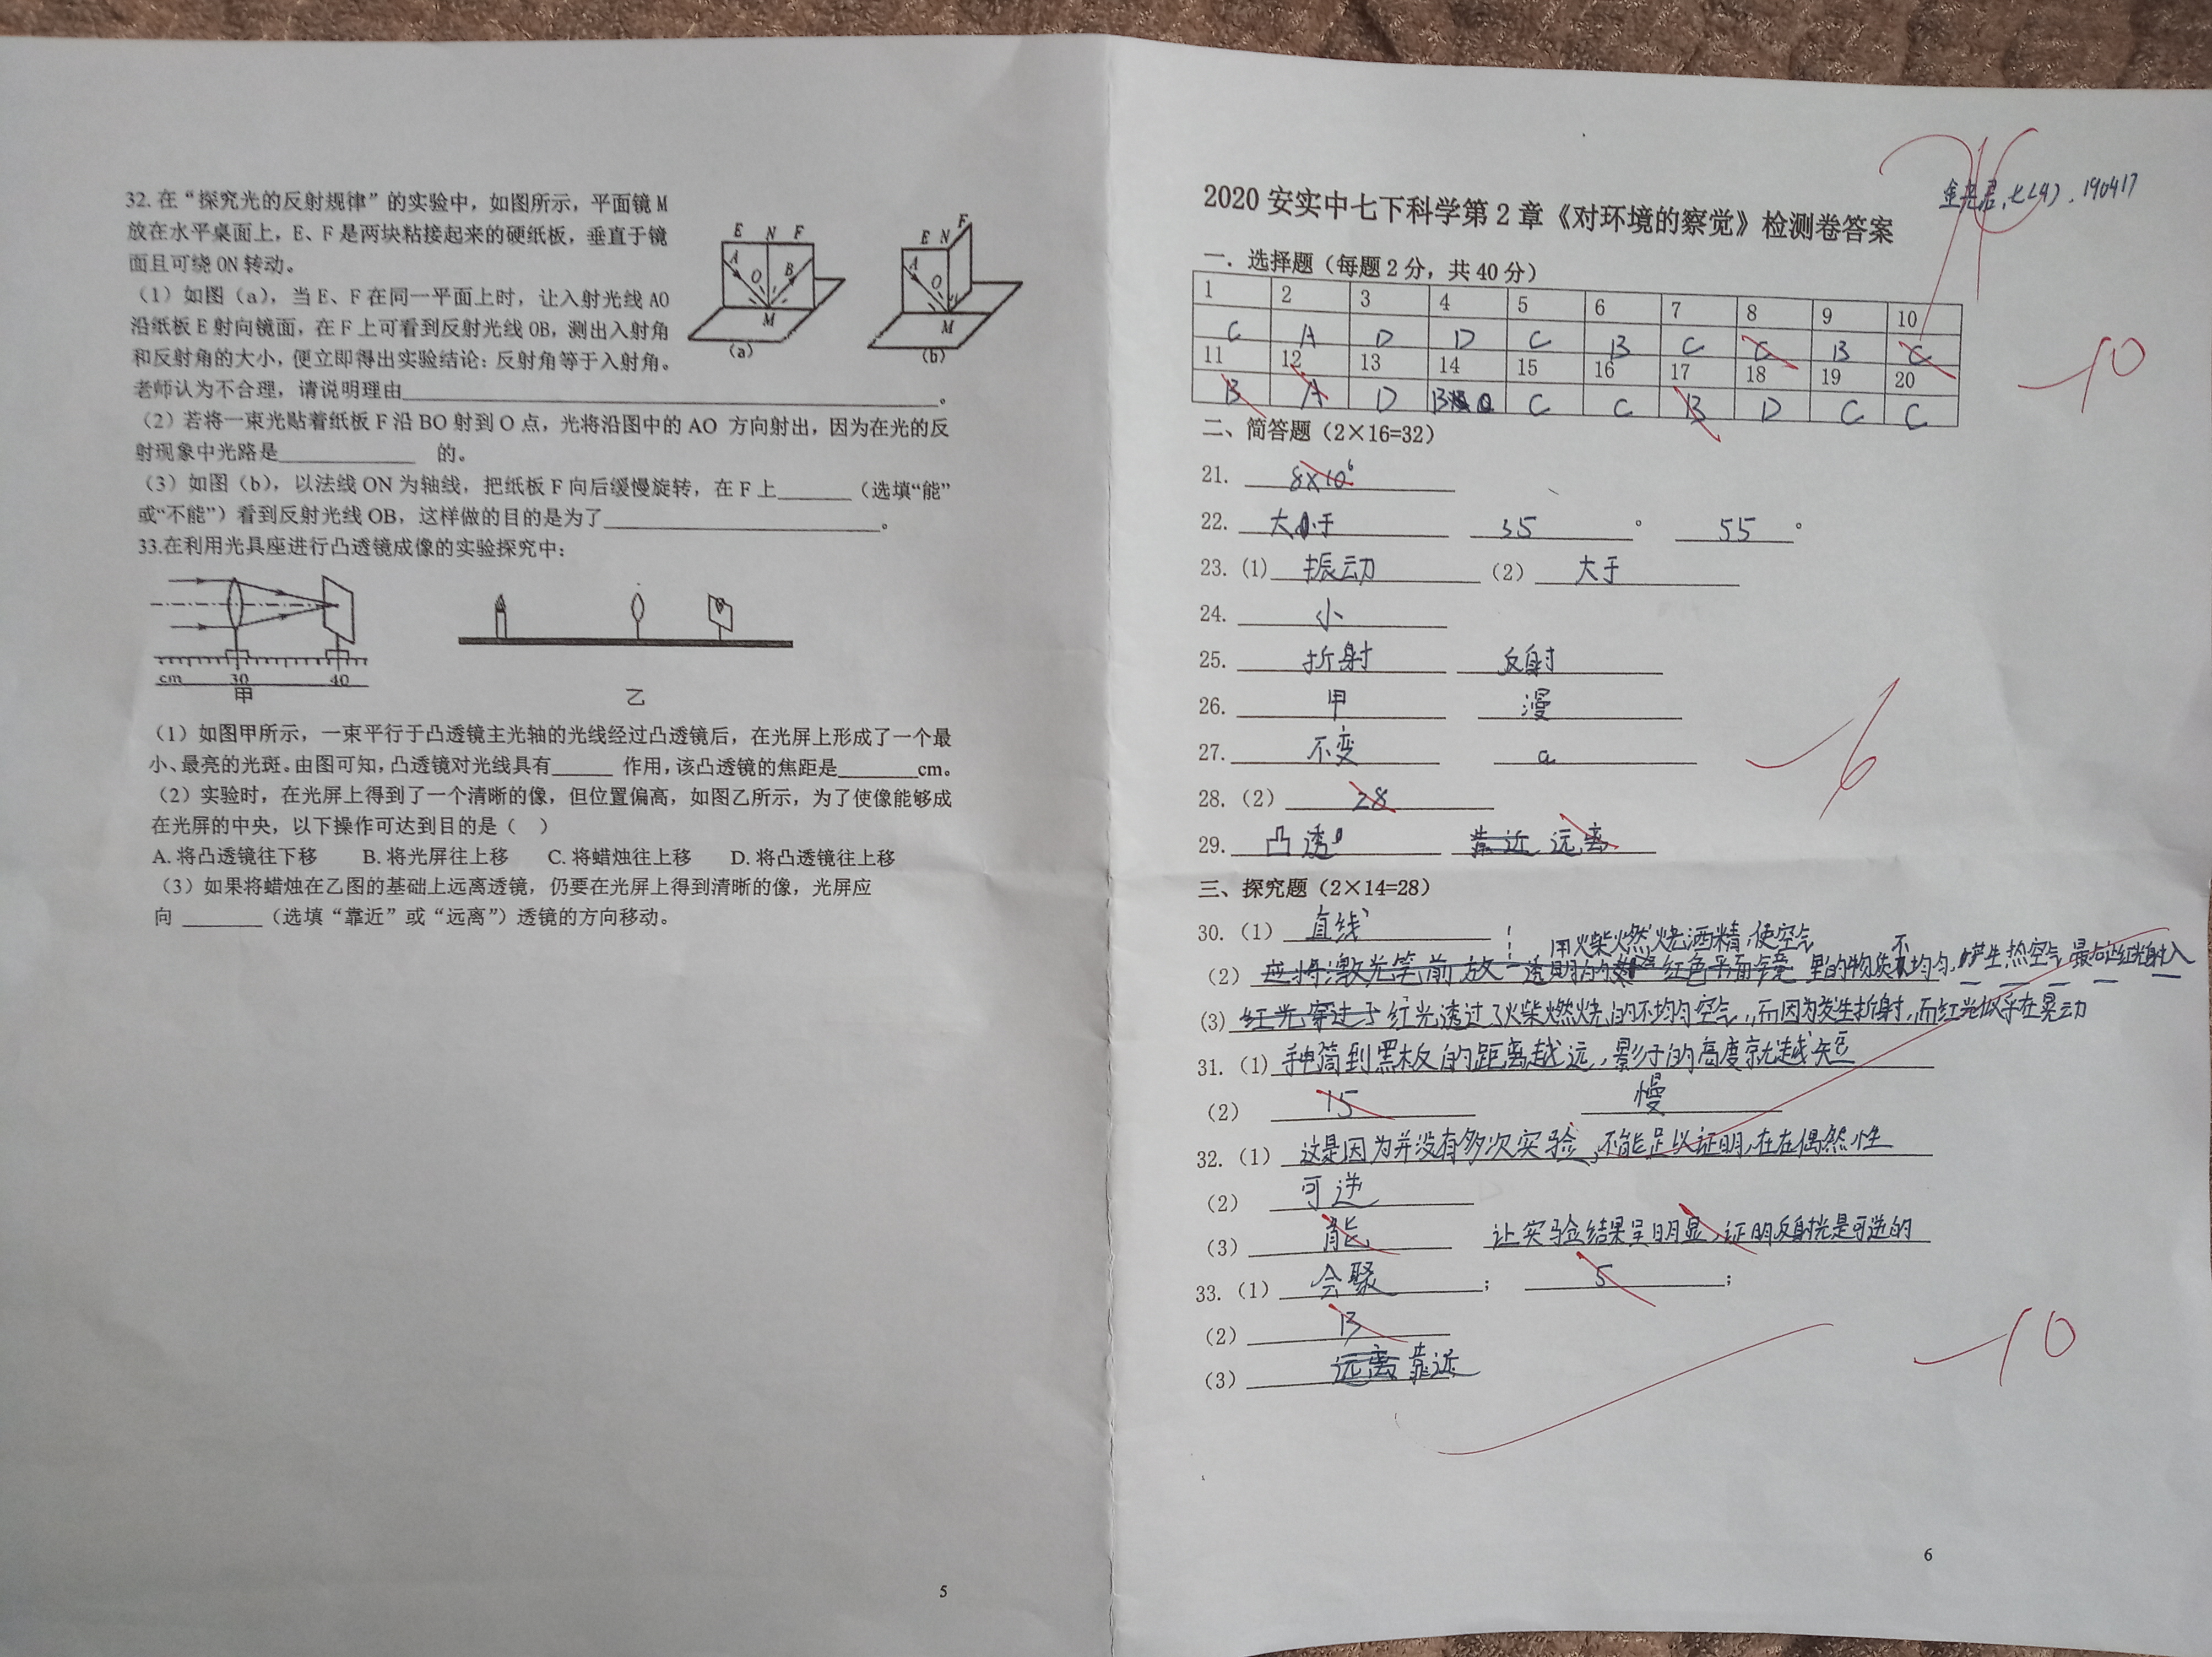 32. 在“探究光的反射规律”的实验中，如图所示，平面镜 M
放在水平桌面上，E、F 是两块粘接起来的硬纸板，垂直于镜
面且可绕 ON 转动。
（1）如图（a），当 E、F 在同一平面上时，让入射光线 AO
沿纸板 E 射向镜面，在 F 上可看到反射光线 OB，测出入射角
和反射角的大小，便立即得出实验结论：反射角等于入射角。
老师认为不合理，请说明理由 。
（2）若将一束光贴着纸板 F 沿 BO 射到 O 点，光将沿图中的 AO 方向射出，因为在光的反
射现象中光路是 的。
（3）如图（b），以法线 ON 为轴线，把纸板 F 向后缓慢旋转，在 F 上 （选填“能”
或“不能”）看到反射光线 OB，这样做的目的是为了 。
E N F
A O B
M
（a）
E N F
A O
M
（b）
33.在利用光具座进行凸透镜成像的实验探究中：
cm 30 40
甲
乙
（1）如图甲所示，一束平行于凸透镜主光轴的光线经过凸透镜后，在光屏上形成了一个最
小、最亮的光斑。由图可知，凸透镜对光线具有 作用，该凸透镜的焦距是 cm。
（2）实验时，在光屏上得到了一个清晰的像，但位置偏高，如图乙所示，为了使像能够成
在光屏的中央，以下操作可达到目的是（ ）
A. 将凸透镜往下移 B. 将光屏往上移 C. 将蜡烛往上移 D. 将凸透镜往上移
（3）如果将蜡烛在乙图的基础上远离透镜，仍要在光屏上得到清晰的像，光屏应
向 （选填“靠近”或“远离”）透镜的方向移动。
5
七(4). 190417
2020 安实中七下科学第 2 章《对环境的察觉》检测卷答案
一．选择题（每题 2 分，共 40 分）
1 2 3 4 5 6 7 8 9 10
C A D D C B C C B C
11 12 13 14 15 16 17 18 19 20
B A D B C C B D C C
-10
二、简答题（2×16=32）
21. 8×10⁶
22. 大于 35 ° 55 °
23. (1) 振动 (2) 大于
24. 小
25. 折射 反射
26. 甲 漫
27. 不变 a
28. (2) 28
29. 凸透 靠近 远离
-6
三、探究题（2×14=28）
30. (1) 直线
用火柴燃烧酒精,使空气
(2) 应将激光笔前放一透明的 红色平面镜 里的物质不均匀,产生热空气,最后让红光射入
(3) 红光穿过于 红光透过了火柴燃烧的不均匀空气,而因为发生折射,而红光似乎在晃动
31. (1) 手电筒到黑板的距离越远,影子的高度就越矮
(2) 15 慢
32. (1) 这是因为并没有多次实验,不能足以证明,存在偶然性
(2) 可逆
(3) 能 让实验结果呈明显,证明反射光是可逆的
33. (1) 会聚 ； 5 ；
(2) B
(3) 远离 靠近
-10
6